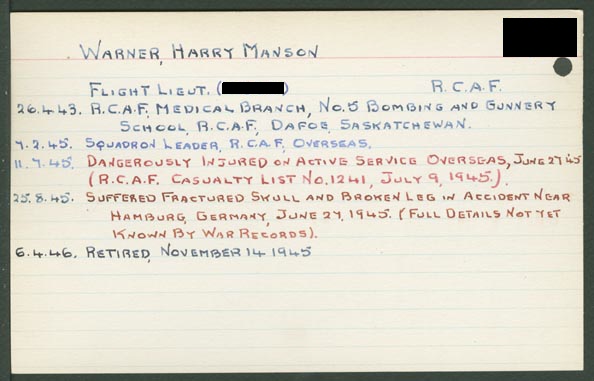 WARNER, HARRY MANSON
FLIGHT LIEUT. ( ) R.C.A.F.
26.4.43. R.C.A.F. MEDICAL BRANCH, NO.5 BOMBING AND GUNNERY
SCHOOL, R.C.A.F. DAFOE, SASKATCHEWAN.
7.2.45. SQUADRON LEADER, R.C.A.F. OVERSEAS.
11.7.45. DANGEROUSLY INJURED ON ACTIVE SERVICE OVERSEAS, JUNE 27 45
(R.C.A.F. CASUALTY LIST NO.1241, JULY 9, 1945.).
25.8.45. SUFFERED FRACTURED SKULL AND BROKEN LEG IN ACCIDENT NEAR
HAMBURG, GERMANY, JUNE 27, 1945. (FULL DETAILS NOT YET
KNOWN BY WAR RECORDS).
6.4.46. RETIRED, NOVEMBER 14 1945